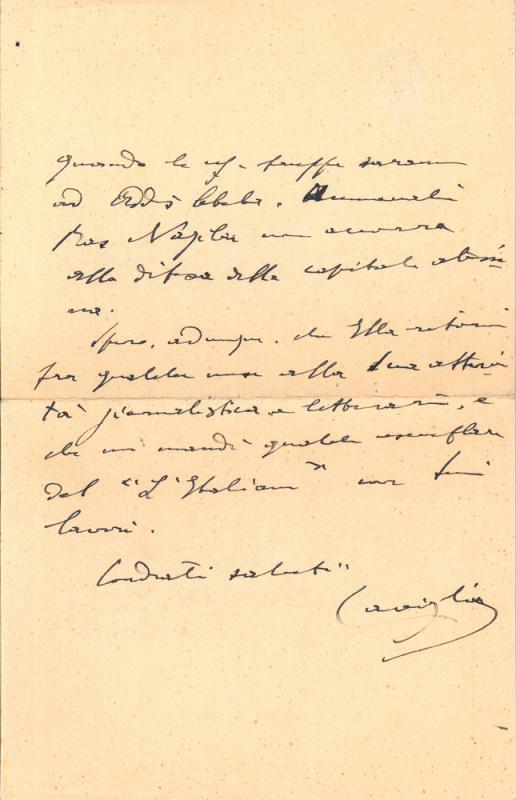 quando le ns. truppe saranno
ad Addis Abeba.
Ras Nasibu non accorra
alla difesa della capitale abissi-
na.
Spero, adunque, che Ella ritorni
fra qualche mese alla Sua attivi-
tà giornalistica e letteraria, e
che mi mandi qualche esemplare
del "L'Italiano" con Suoi
lavori.
Cordiali saluti
Caviglia